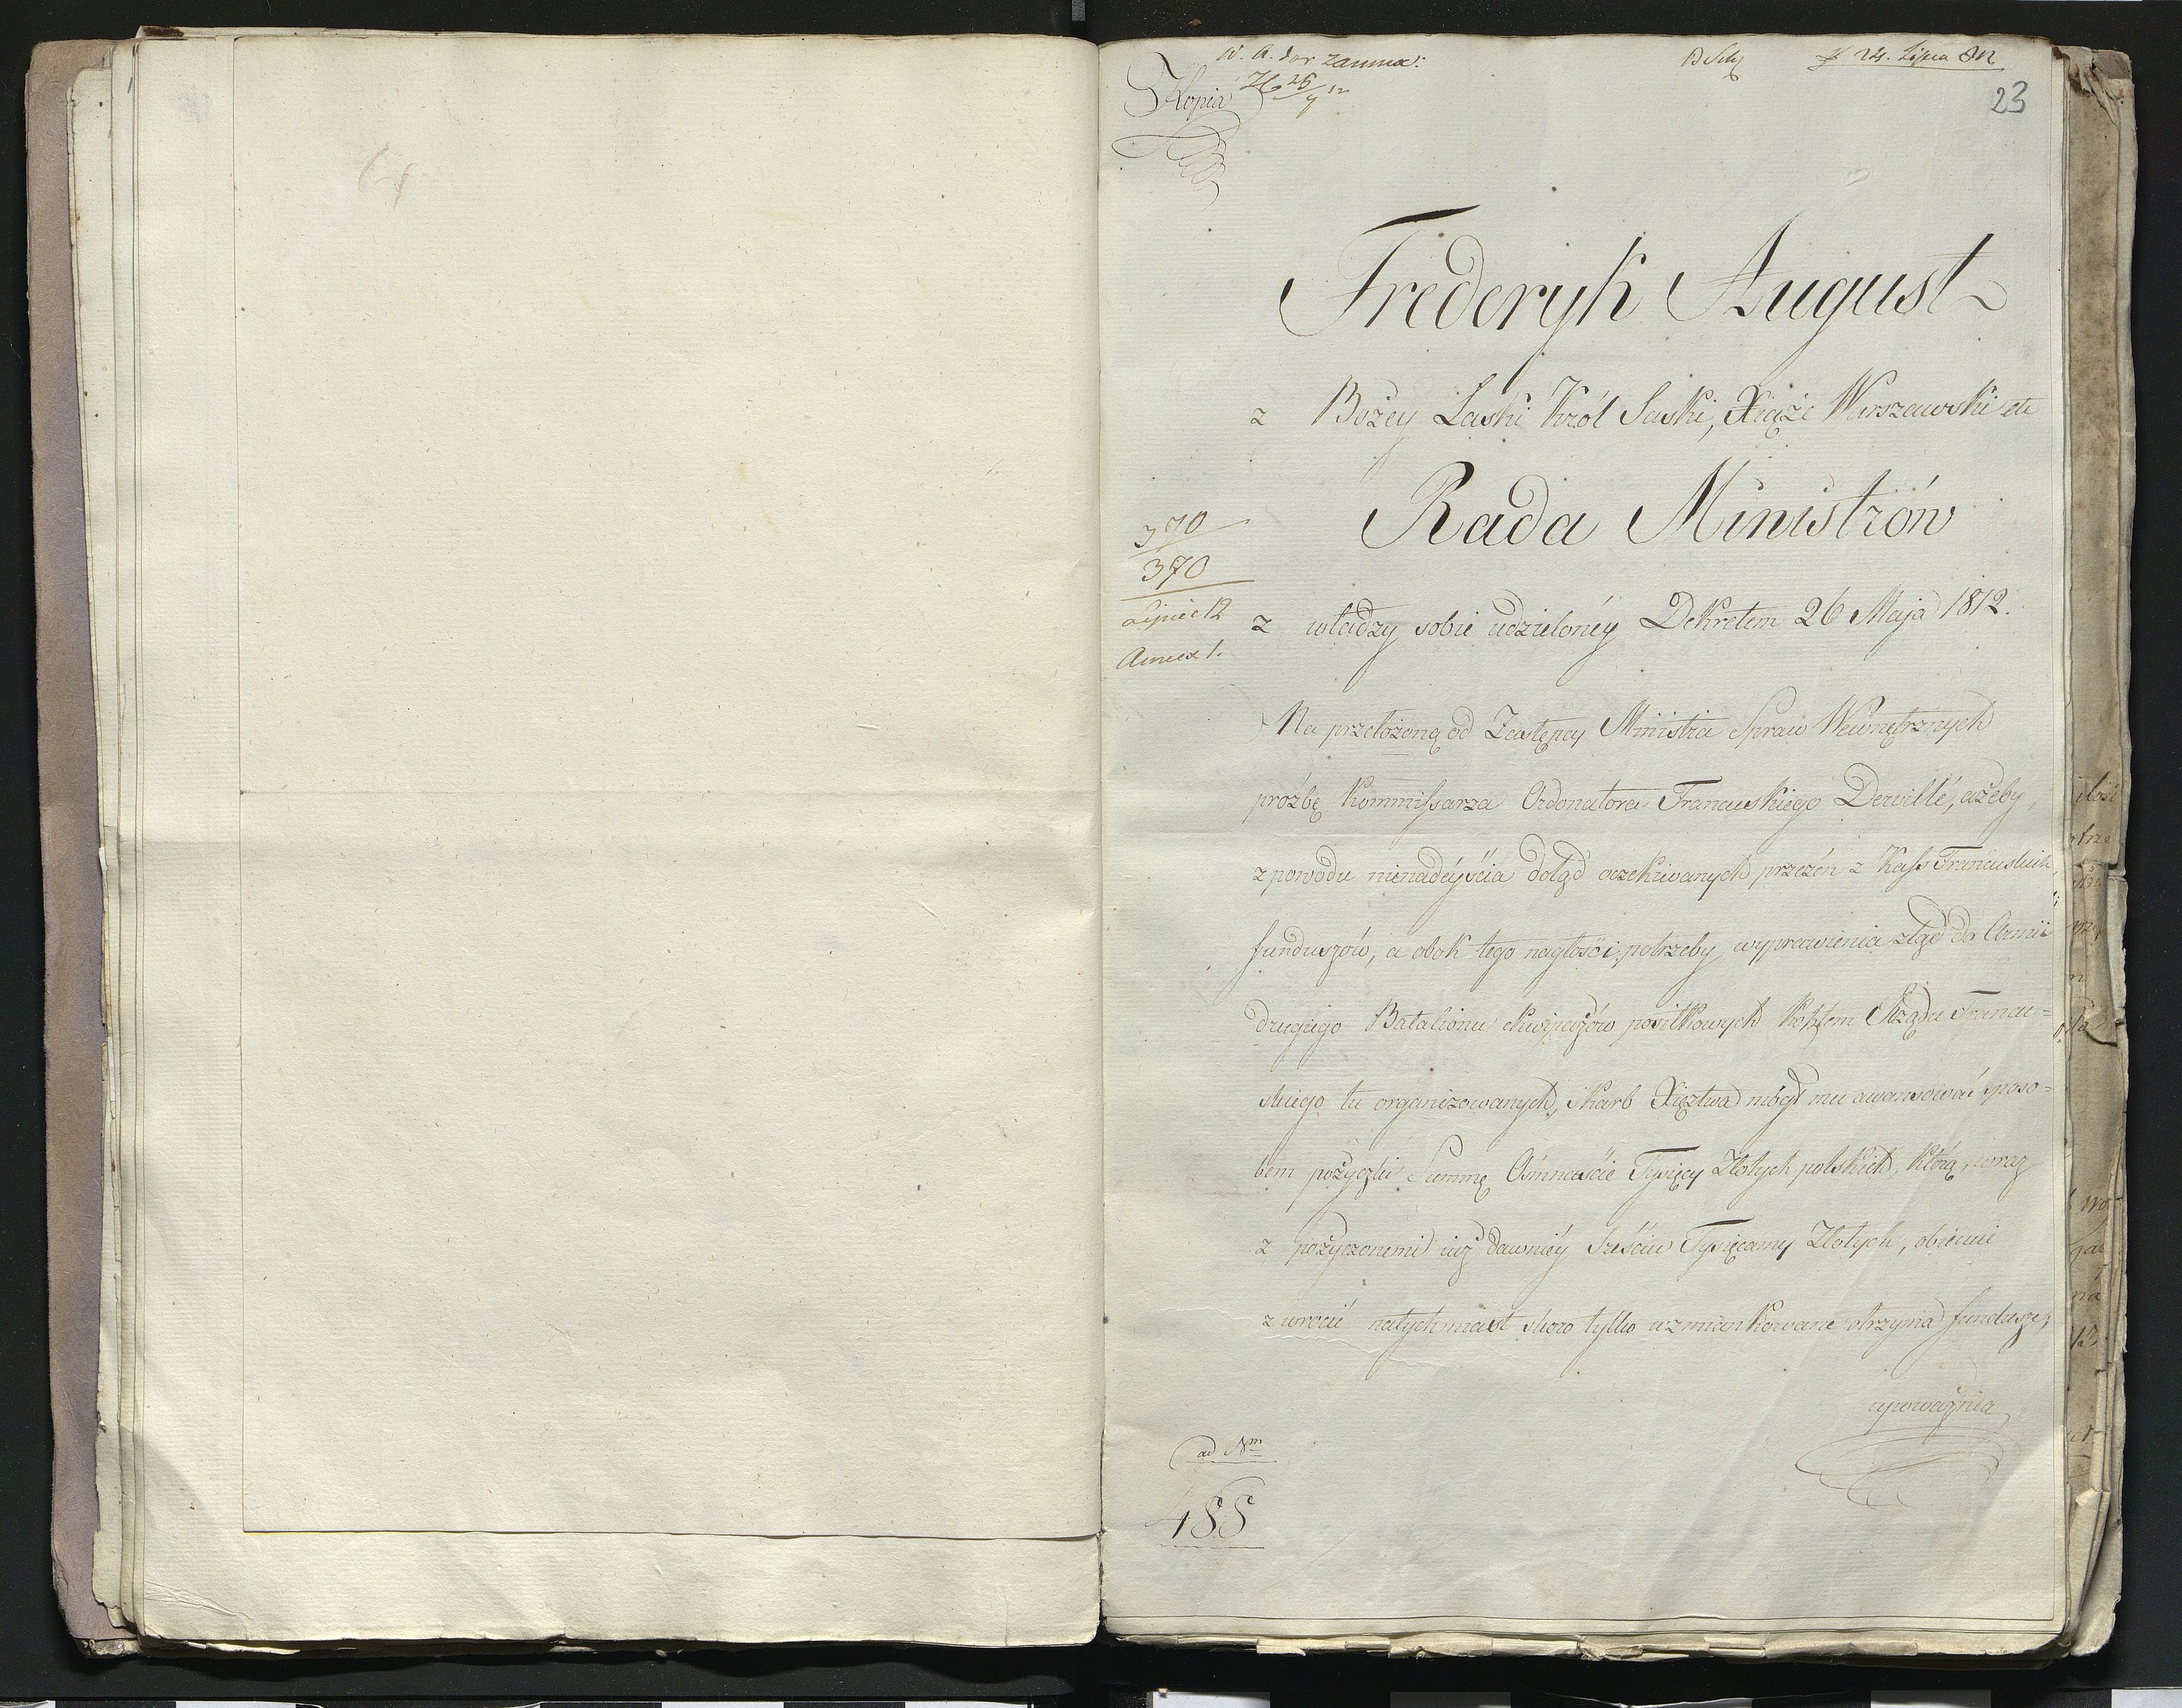 Kopia
24. Lipca 812
23
Frederyk August
z Bożey Łaski Król Saski, Xiąże Warszawski etc
Rada Ministrów
370
370
Lipiec 12
Annex 1.
z władzy sobie udzielonéy Dekretem 26 Maja 1812.
Na przełożoną od Zastępcy Ministra Spraw Wewnętrznych
prozbę Kommissarza Ordonatora Francuskiego Derville, ażeby
z powodu nienadéyścia dotąd oczekiwanych przezeń z Kass Francuskich
funduszów, a obok tego nagłości potrzeby wyprawienia ztąd do Armii
drugiego Batalionu ekwipażów posiłkowych kosztem Rządu Francu=
skiego tu organizowanych, skarb Xięztwa mógł mu awansować sposo=
bem pożyczki Summę Ośmnaście Tysięcy Złotych polskich, którą, wraz
z pożyczonemi iuż dawniéy Sześciu Tysięcamy Złotych, obiecuie
zwrócić natychmiast skoro tylko wzmiankowane otrzyma fundusze,
upoważnia
ad Nm
488